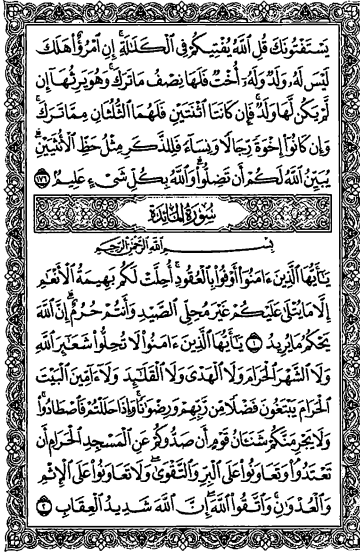 يَسْتَفْتُونَكَ قُلِ اللَّهُ يُفْتِيكُمْ فِي الْكَلَالَةِ إِنِ امْرُؤٌا هَلَكَ
لَيْسَ لَهُ وَلَدٌ وَلَهُ أُخْتٌ فَلَهَا نِصْفُ مَا تَرَكَ وَهُوَ يَرِثُهَا إِن
لَّمْ يَكُن لَّهَا وَلَدٌ فَإِن كَانَتَا اثْنَتَيْنِ فَلَهُمَا الثُّلُثَانِ مِمَّا تَرَكَ
وَإِن كَانُوا إِخْوَةً رِّجَالًا وَنِسَاءً فَلِلذَّكَرِ مِثْلُ حَظِّ الْأُنثَيَيْنِ
يُبَيِّنُ اللَّهُ لَكُمْ أَن تَضِلُّوا وَاللَّهُ بِكُلِّ شَيْءٍ عَلِيمٌ ١٧٦
سُورَةُ المَائِدَة
بِسْمِ اللَّهِ الرَّحْمَٰنِ الرَّحِيمِ
يَا أَيُّهَا الَّذِينَ ءَامَنُوا أَوْفُوا بِالْعُقُودِ أُحِلَّتْ لَكُم بَهِيمَةُ الْأَنْعَٰمِ
إِلَّا مَا يُتْلَىٰ عَلَيْكُمْ غَيْرَ مُحِلِّي الصَّيْدِ وَأَنتُمْ حُرُمٌ إِنَّ اللَّهَ
يَحْكُمُ مَا يُرِيدُ ١ يَا أَيُّهَا الَّذِينَ ءَامَنُوا لَا تُحِلُّوا شَعَٰئِرَ اللَّهِ
وَلَا الشَّهْرَ الْحَرَامَ وَلَا الْهَدْيَ وَلَا الْقَلَٰئِدَ وَلَا ءَامِّينَ الْبَيْتَ
الْحَرَامَ يَبْتَغُونَ فَضْلًا مِّن رَّبِّهِمْ وَرِضْوَٰنًا وَإِذَا حَلَلْتُمْ فَاصْطَادُوا
وَلَا يَجْرِمَنَّكُمْ شَنَـَٔانُ قَوْمٍ أَن صَدُّوكُمْ عَنِ الْمَسْجِدِ الْحَرَامِ أَن
تَعْتَدُوا وَتَعَاوَنُوا عَلَى الْبِرِّ وَالتَّقْوَىٰ وَلَا تَعَاوَنُوا عَلَى الْإِثْمِ
وَالْعُدْوَٰنِ وَاتَّقُوا اللَّهَ إِنَّ اللَّهَ شَدِيدُ الْعِقَابِ ٢